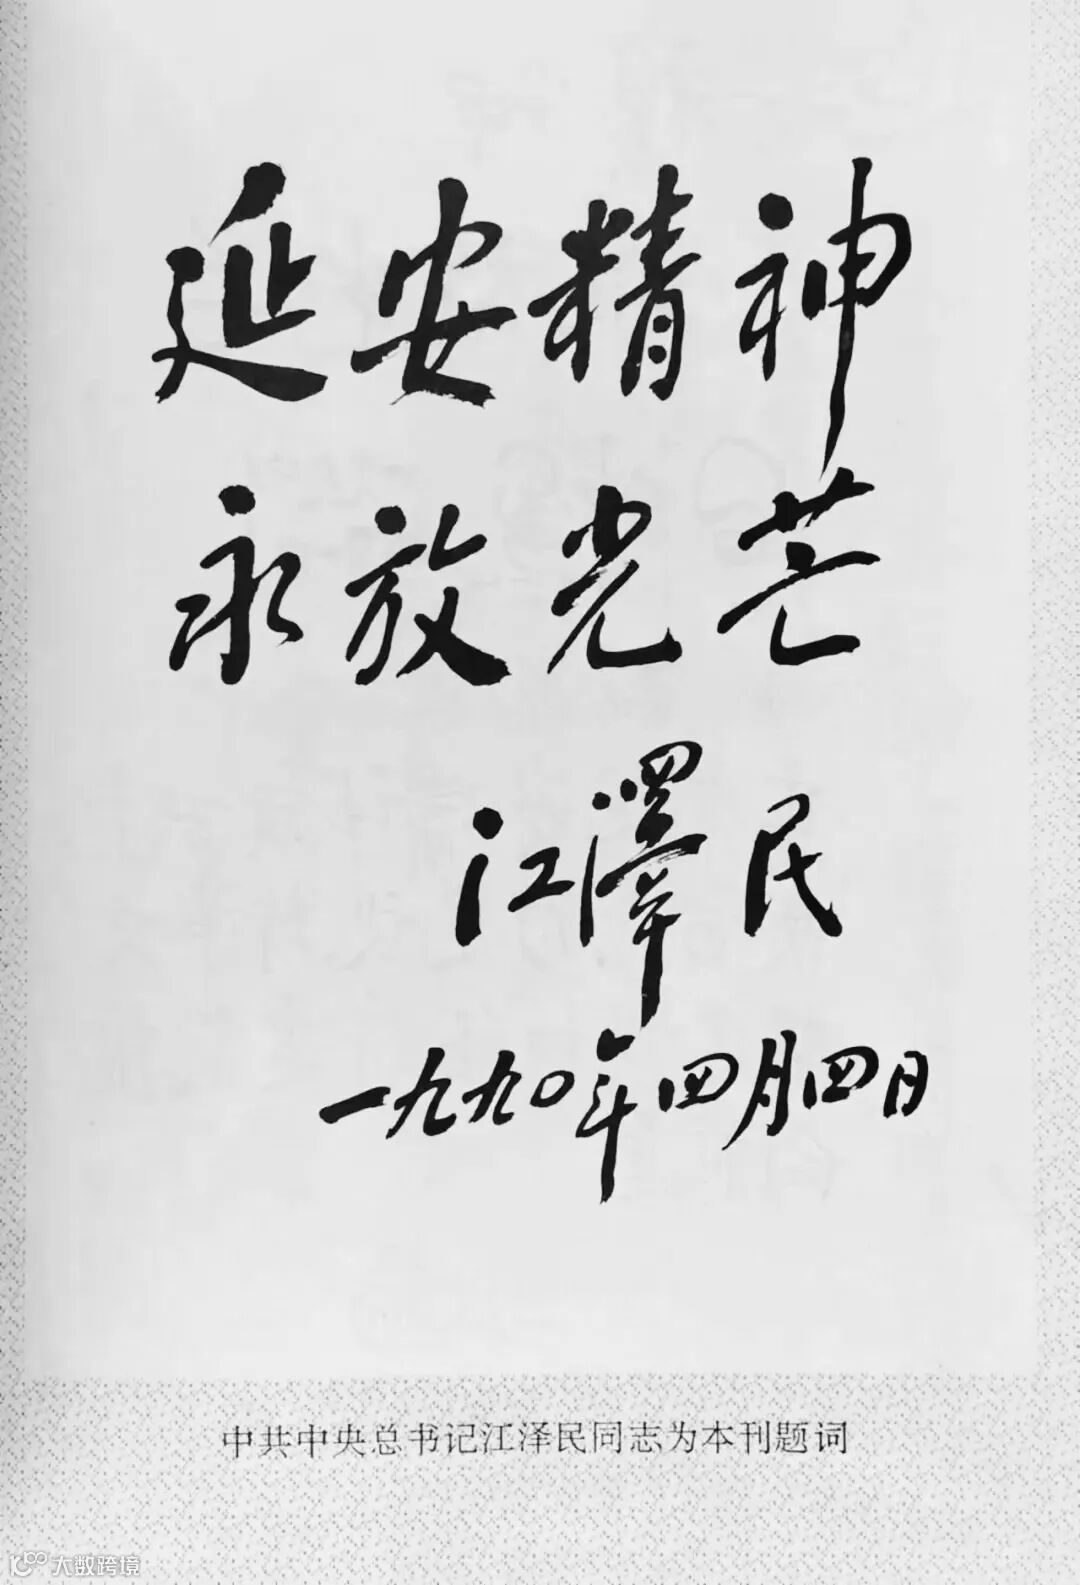 延安精神
永放光芒
江澤民
一九九〇年四月四日
中共中央总书记江泽民同志为本刊题词
大数跨境